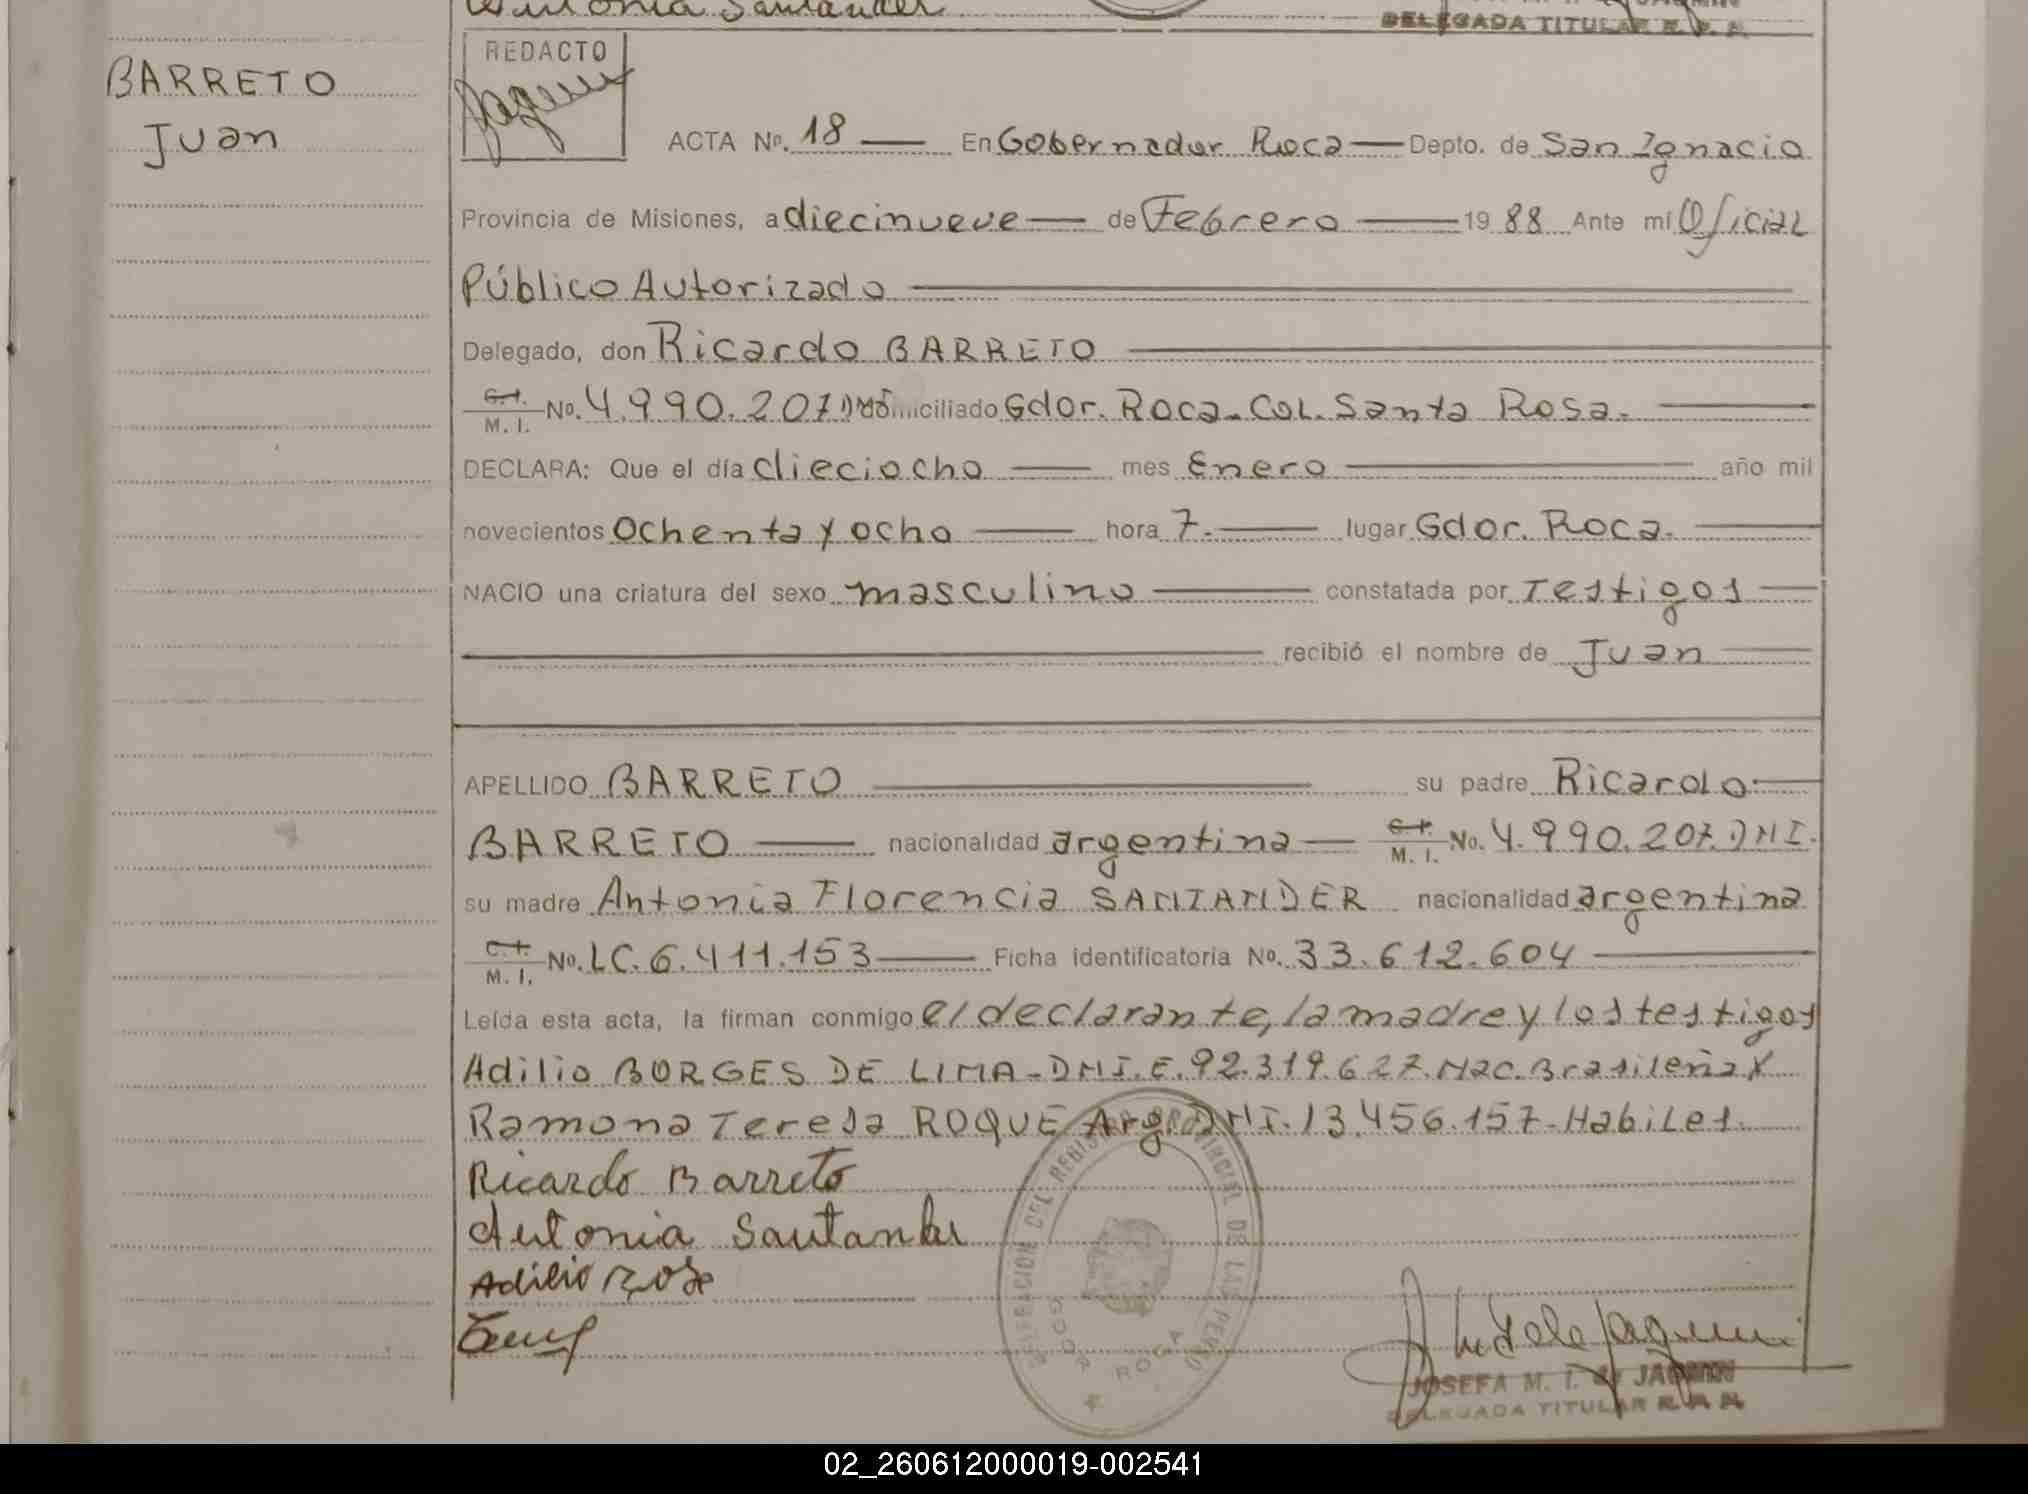 Antonia Santander
DELEGADA TITULAR R. P. P.
BARRETO
Juan
REDACTO
ACTA Nº. 18 En Gobernador Roca Depto. de San Ignacio
Provincia de Misiones, a diecinueve de Febrero 19 88 Ante mí Oficial
Público Autorizado
Delegado, don Ricardo BARRETO
C.I. M. I. Nº. 4.990.207 DNI domiciliado Gdor. Roca-Col. Santa Rosa.
DECLARA: Que el día dieciocho mes Enero año mil
novecientos Ochenta y ocho hora 7. lugar Gdor. Roca.
NACIO una criatura del sexo masculino constatada por Testigos
recibió el nombre de Juan
APELLIDO BARRETO su padre Ricardo
BARRETO nacionalidad argentina C.I. M. I. No. 4.990.207.DNI.
su madre Antonia Florencia SANTANDER nacionalidad argentina
C.I. M. I. Nº. LC. 6.411.153 Ficha identificatoria Nº. 33.612.604
Leída esta acta, la firman conmigo el declarante, la madre y los testigos
Adilio BORGES DE LIMA-DNI.E.92.319.627.Nac.Brasileña y
Ramona Teresa ROQUE Arg.DNI.13.456.157-Habiles.
Ricardo Barreto
Antonia Santander
Adilio
DELEGACION DEL REGISTRO PROVINCIAL DE LAS PERSO
GDOR ROCA
JOSEFA M. I. de JAQUIN
DELEGADA TITULAR R. P. P.
02_260612000019-002541